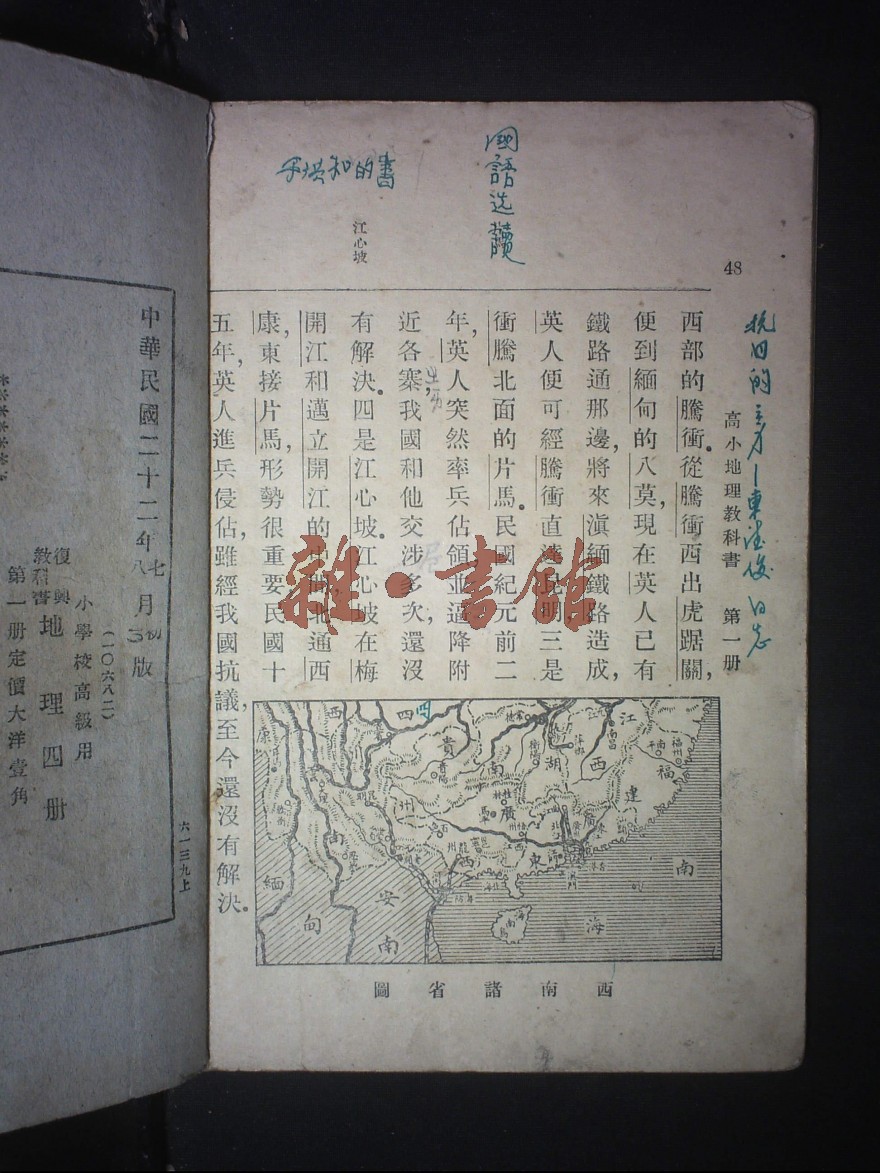 48
高小地理教科書 第一册
國語选讀
的書
江心坡
西部的騰衝.從騰衝西出虎踞關,
便到緬甸的八莫,現在英人已有
鐵路通那邊,將來滇緬鐵路造成,
英人便可經騰衝直達昆明.三是
衝騰北面的片馬.民國紀元前二
年,英人突然率兵佔領並逼降附
近各寨,我國和他交涉多次,還沒
有解決.四是江心坡.江心坡在梅
開江和邁立開江的中間,北通西
康,東接片馬,形勢很重要.民國十
五年,英人進兵侵佔,雖經我國抗議,至今還沒有解決.
雜·書館
康
西
四
貴
州
湖
南
江
西
福
建
廣
西
廣
東
緬
甸
安
南
南
海
西南諸省圖
中華民國二十二年七月初版
八 三
小學校高級用
(一〇六八二)
復興
教科書 地理四册
第一册定價大洋壹角
六一三九上